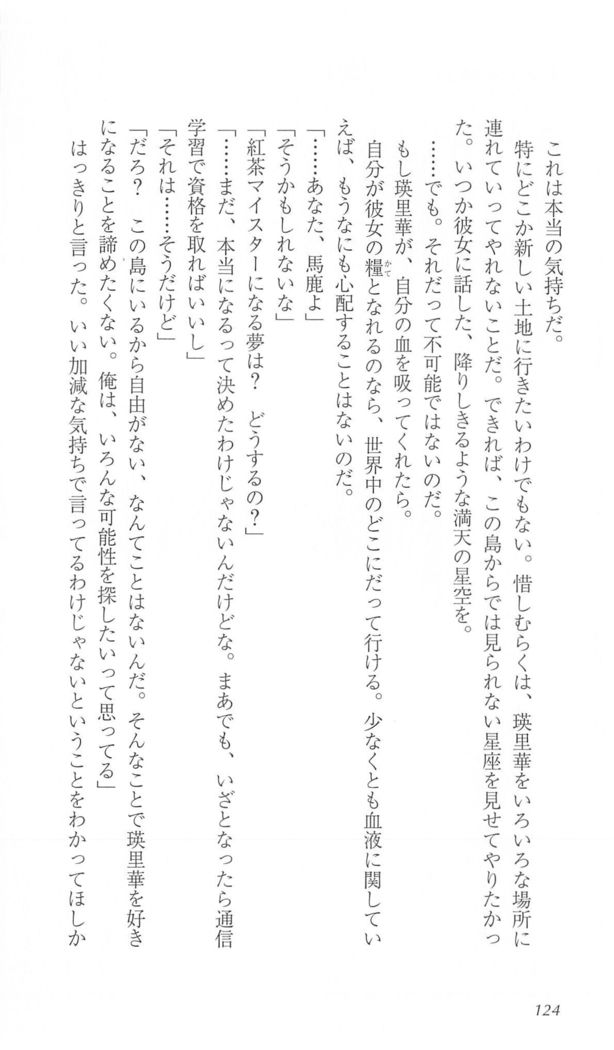 これは本当の気持ちだ。
特にどこか新しい土地に行きたいわけでもない。惜しむらくは、瑛里華をいろいろな場所に
連れていってやれないことだ。できれば、この島からでは見られない星座を見せてやりたかっ
た。いつか彼女に話した、降りしきるような満天の星空を。
……でも。それだって不可能ではないのだ。
もし瑛里華が、自分の血を吸ってくれたら。
自分が彼女の糧となれるのなら、世界中のどこにだって行ける。少なくとも血液に関してい
かて
えば、もうなにも心配することはないのだ。
「……あなた、馬鹿よ」
「そうかもしれないな」
「紅茶マイスターになる夢は？　どうするの？」
「……まだ、本当になるって決めたわけじゃないんだけどな。まあでも、いざとなったら通信
学習で資格を取ればいいし」
「それは……そうだけど」
「だろ？　この島にいるから自由がない、なんてことはないんだ。そんなことで瑛里華を好き
になることを諦めたくない。俺は、いろんな可能性を探したいって思ってる」
はっきりと言った。いい加減な気持ちで言ってるわけじゃないということをわかってほしか
124